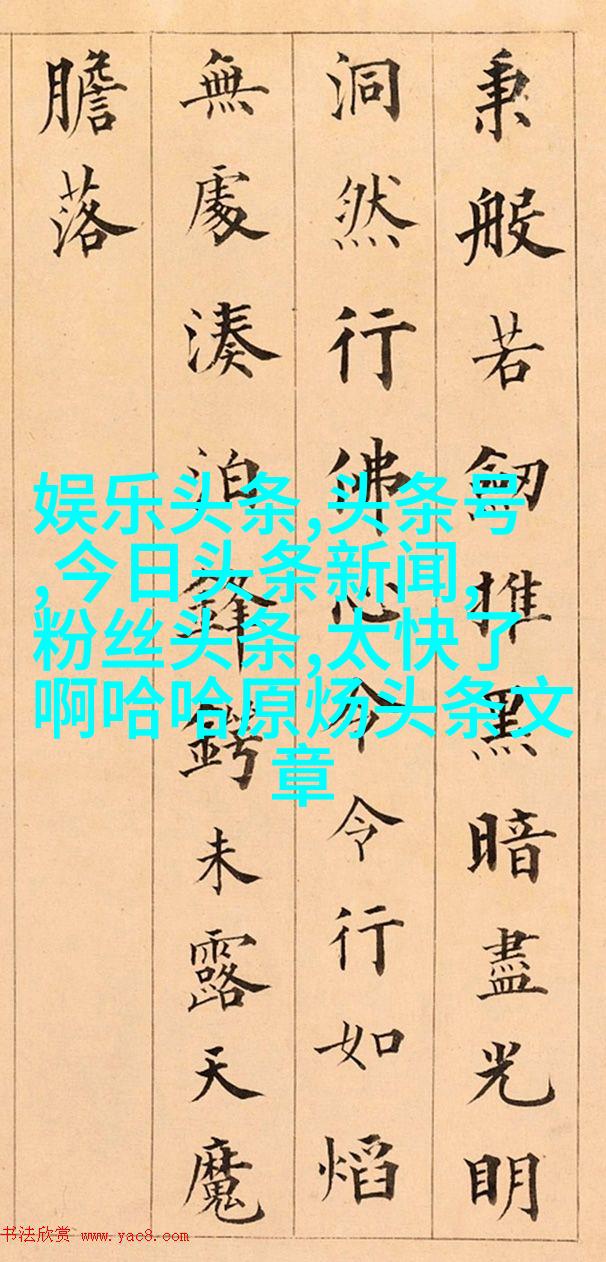 秉般若劒推黑暗盡光明
洞然行佛心令令行如熖
無處湊泊鋒鍔未露天魔
膽落
娱乐头条,头条号
,今日头条新闻,
粉丝头条,太快了
啊哈哈原炀头条文
章
书法欣赏 www.yac8.com